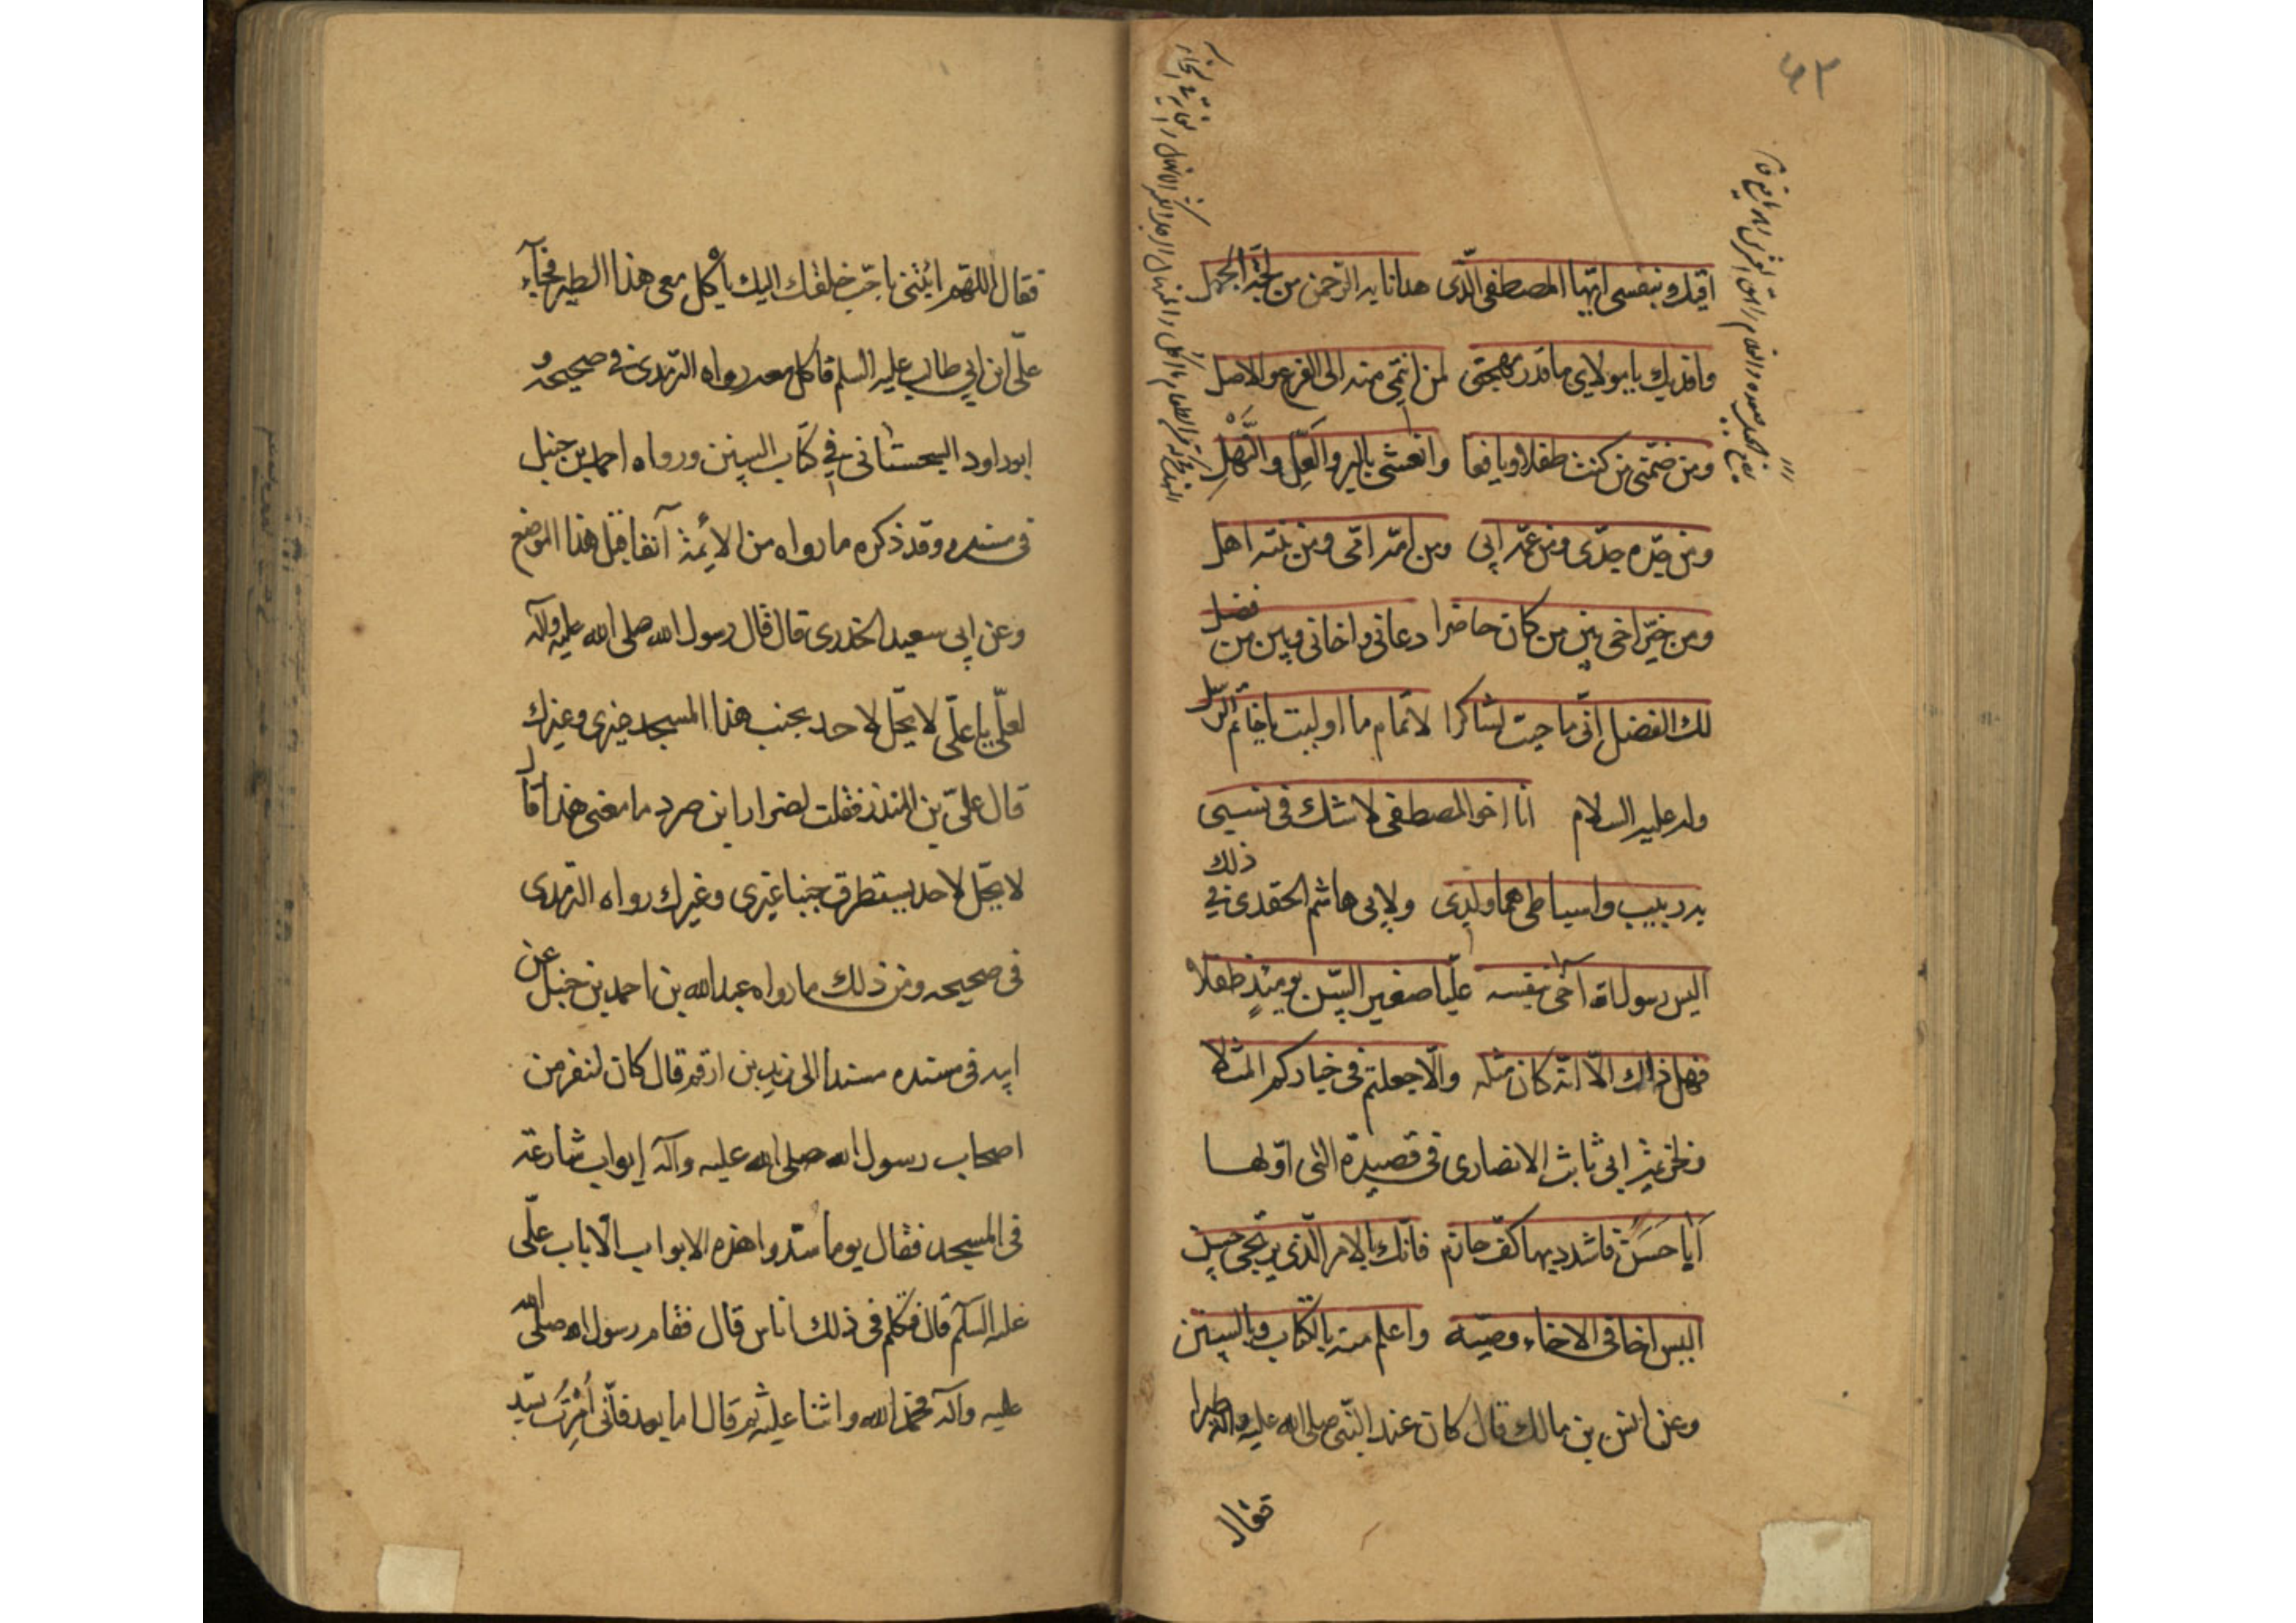 اقيك وبنفسي ايها المصطفى الذى هدانا به الرحمن من لجة الجهل
وافديك يا مولاى ما قدر مهجتى لمن انتمى منه الى الفرع والاصل
ومن ضمنى من كنت طفلا ويافعا وانعشنى بالبر والعل والنهل
ومن جده جدى ومن عمه ابى ومن امه امى ومن بنته اهل
ومن خير اخى بين من كان حاضرا دعانى واخانى وبين من فضل
لك الفضل انى ما حييت لشاكرا لاتمام ما اوليت يا خاتم الرسل
وله عليه السلام انا اخو المصطفى لا شك فى نسبى
به ربيت واسباطى هما ولدى
اليس رسول الله آخى بنفسه عليا صغير السن يومئذ طفلا
فهل ذلك الا انه كان مثله والا جعلتم فى خياركم المثلا
ثابت الانصارى فى قصيدة التى اولها
ايا حسن فاشدد بها كف حازم فانك بالامر الذى يرتجى
اليس اخا فى الاخاء وصيه واعلم منه بالكتاب وبالسنن
وعن انس بن مالك قال كان عند النبى صلى الله عليه وآله طيرا
فقال
فقال اللهم ائتنى باحب خلقك اليك يأكل معى هذا الطير فجآء
على ابن ابى طالب عليه السلم فاكل معه رواه الترمذى فى صحيحه و
ابو داود السجستانى فى كتاب السنن ورواه احمد بن حنبل
فى مسنده وقد ذكره ما رواه من الائمة آنفا قبل هذا الموضع
وعن ابى سعيد الخدرى قال قال رسول الله صلى الله عليه وآله
لعلى يا على لا يحل لاحد يجنب هذا المسجد غيرى وغيرك
قال على بن المنذر فقلت لضرار ابن صرد ما معنى هذا قال
لا يحل لاحد يستطرق جنبا غيرى وغيرك رواه الترمذى
فى صحيحه ومن ذلك ما رواه عبد الله بن احمد بن حنبل عن
ابيه فى مسنده مسندا الى زيد بن ارقم قال كان لنفر من
اصحاب رسول الله صلى الله عليه وآله ابواب شارعة
فى المسجد فقال يوما سدوا هذه الابواب الا باب على
عليه السلم قال فتكلم فى ذلك اناس قال فقام رسول الله صلى الله
عليه وآله فحمد الله واثنا عليه ثم قال اما بعد فانى امرت بسد